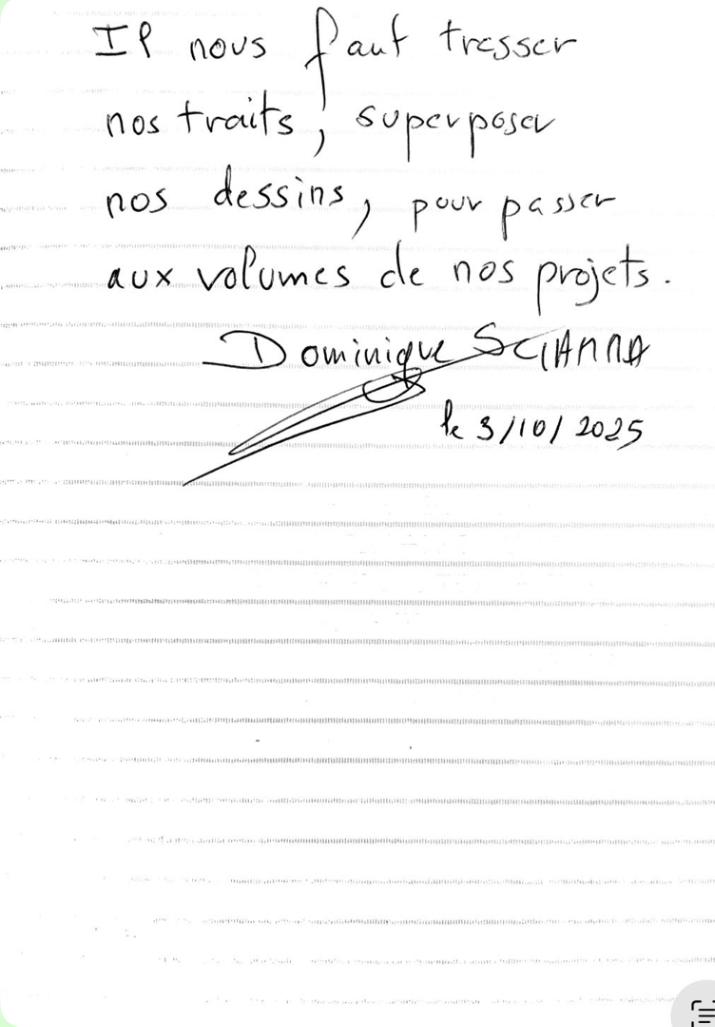 Il nous faut tresser
nos traits, superposer
nos dessins, pour passer
aux volumes de nos projets.
Dominique SCIANNA
le 3/10/2025